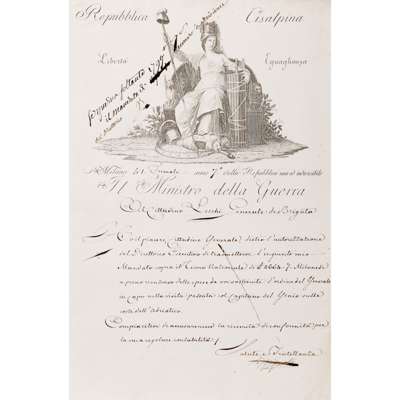 Repubblica Cisalpina
Libertà Eguaglianza
Milano anno 7.° della Repubblica una ed indivisibile
Il Ministro della Guerra
Al Cittadino Lechi Generale di Brigata
Cittadino Generale, dietro l'autorizzazione
del Direttorio Esecutivo di trasmettervi l'aggiunto mio
Mandato sopra il Tesoro Nazionale di £ 2664. 7. Milanesi
a pronto rimborso delle spese da voi sostenute d'ordine del Generale
in Capo nella visita passata al Capitano del Genio sulle
coste dell'Adriatico.
Compiacetevi di accusarmene la ricevuta di conformità per
la mia regolare contabilità.
Salute e Fratellanza